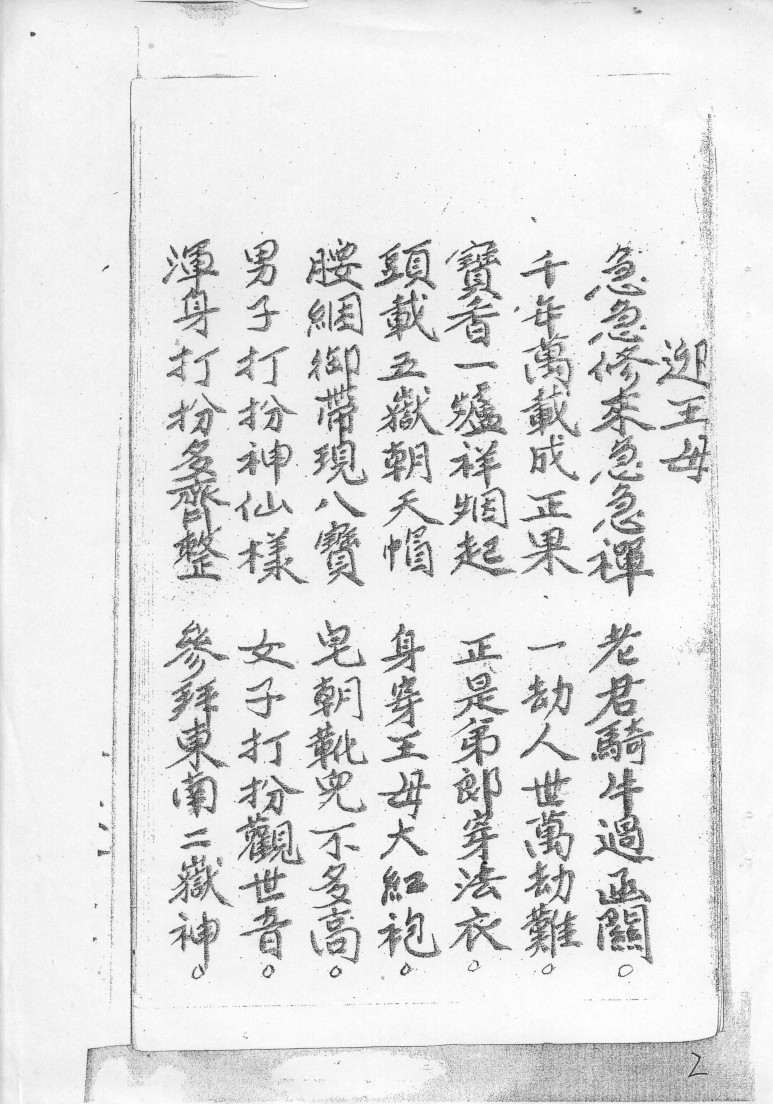 迎王母
急急修來急急禪　老君騎牛過函關。
千年萬載成正果　一劫人世萬劫難。
寶香一爐祥烟起　正是弟郎穿法衣。
頭載五嶽朝天帽　身穿王母大紅袍。
腰綑御帶現八寶　皂朝靴兒不多高。
男子打扮神仙樣　女子打扮觀世音。
渾身打扮多齊整　參拜東南二嶽神。
2